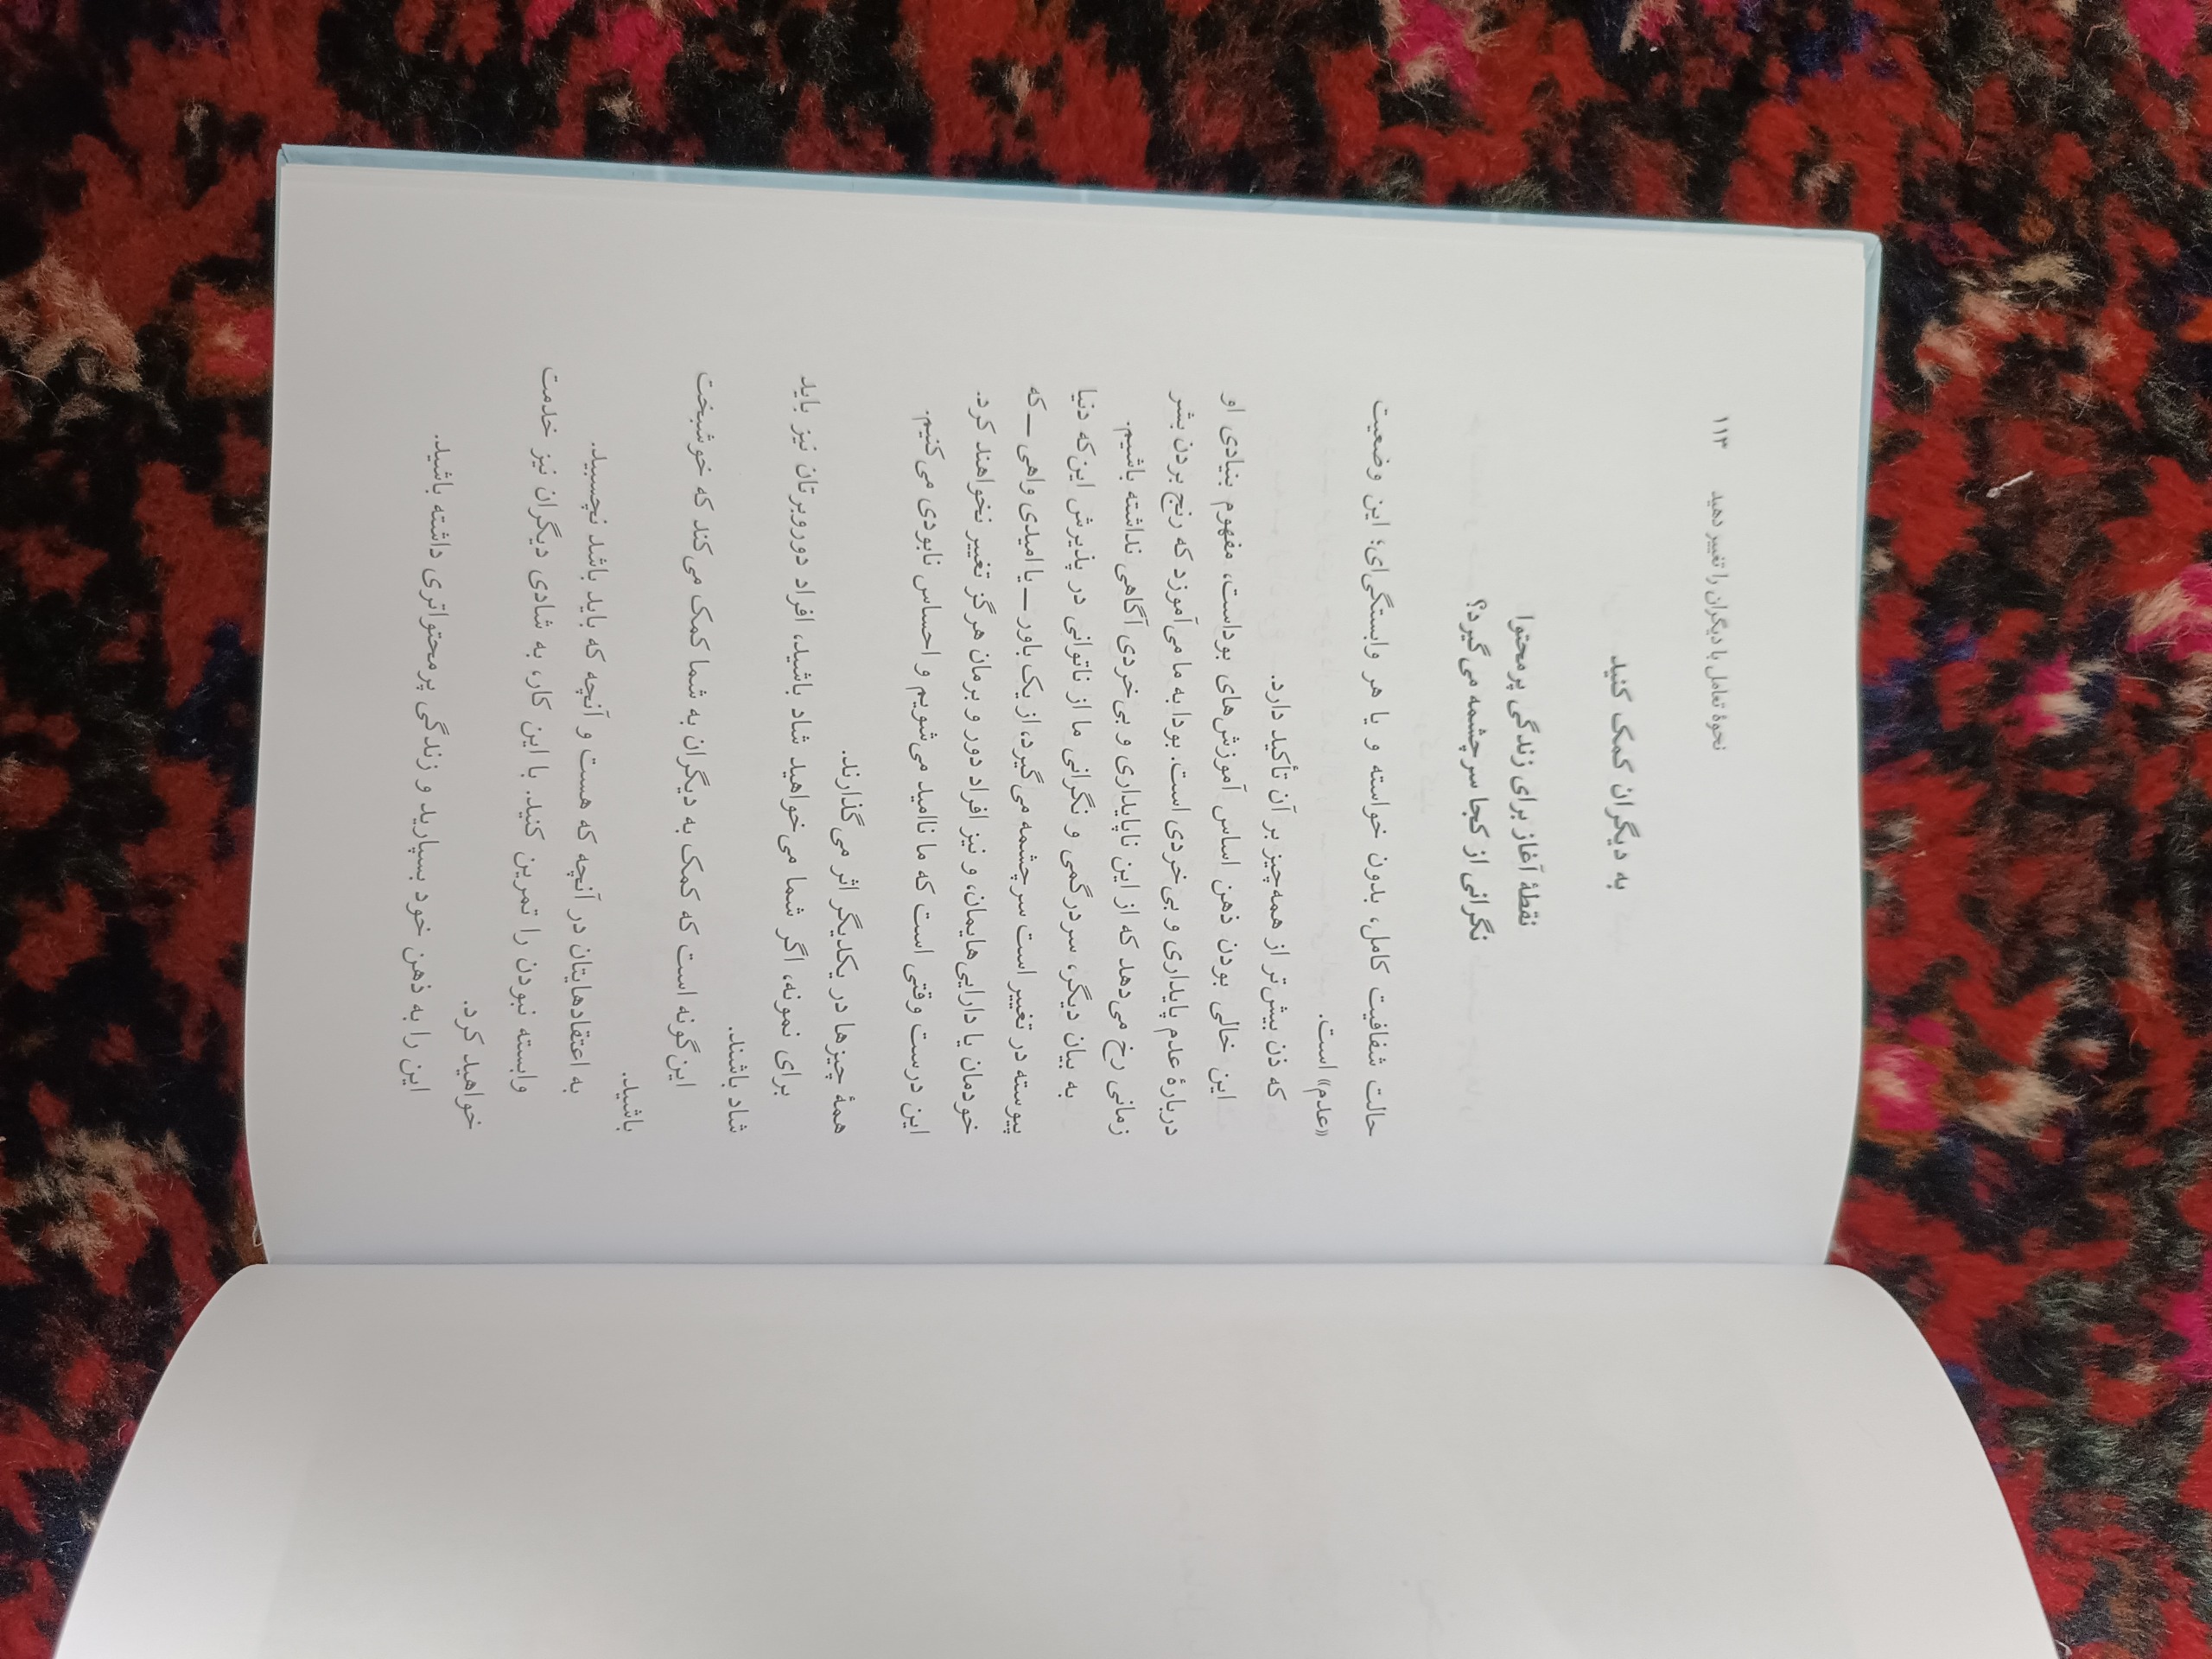 نحوهٔ تعامل با دیگران را تغییر دهید ۱۱۳
به دیگران کمک کنید
نقطهٔ آغاز برای زندگی پرمحتوا
نگرانی از کجا سرچشمه می‌گیرد؟
حالت شفافیت کامل، بدون خواسته و یا هر وابستگی‌ای؛ این وضعیت
«عدم» است.
که ذن بیش‌تر از همه‌چیز بر آن تأکید دارد.
این خالی بودن ذهن اساس آموزش‌های بوداست، مفهوم بنیادی او
دربارهٔ عدم پایداری و بی‌خردی است. بودا به ما می‌آموزد که رنج بردن بشر
زمانی رخ می‌دهد که از این ناپایداری و بی‌خردی آگاهی نداشته باشیم.
به بیان دیگر، سردرگمی و نگرانی ما از ناتوانی در پذیرش این‌که دنیا
پیوسته در تغییر است سرچشمه می‌گیرد، از یک باور ــ یا امیدی واهی ــ که
خودمان یا دارایی‌هایمان، و نیز افراد دور و برمان هرگز تغییر نخواهند کرد.
این درست وقتی است که ما ناامید می‌شویم و احساس نابودی می‌کنیم.
همهٔ چیزها در یکدیگر اثر می‌گذارند.
برای نمونه، اگر شما می‌خواهید شاد باشید، افراد دوروبرتان نیز باید
شاد باشند.
این‌گونه است که کمک به دیگران به شما کمک می‌کند که خوشبخت
باشید.
به اعتقادهایتان در آنچه که هست و آنچه که باید باشد نچسبید.
وابسته نبودن را تمرین کنید. با این کار، به شادی دیگران نیز خدمت
خواهید کرد.
این را به ذهن خود بسپارید و زندگی پرمحتواتری داشته باشید.